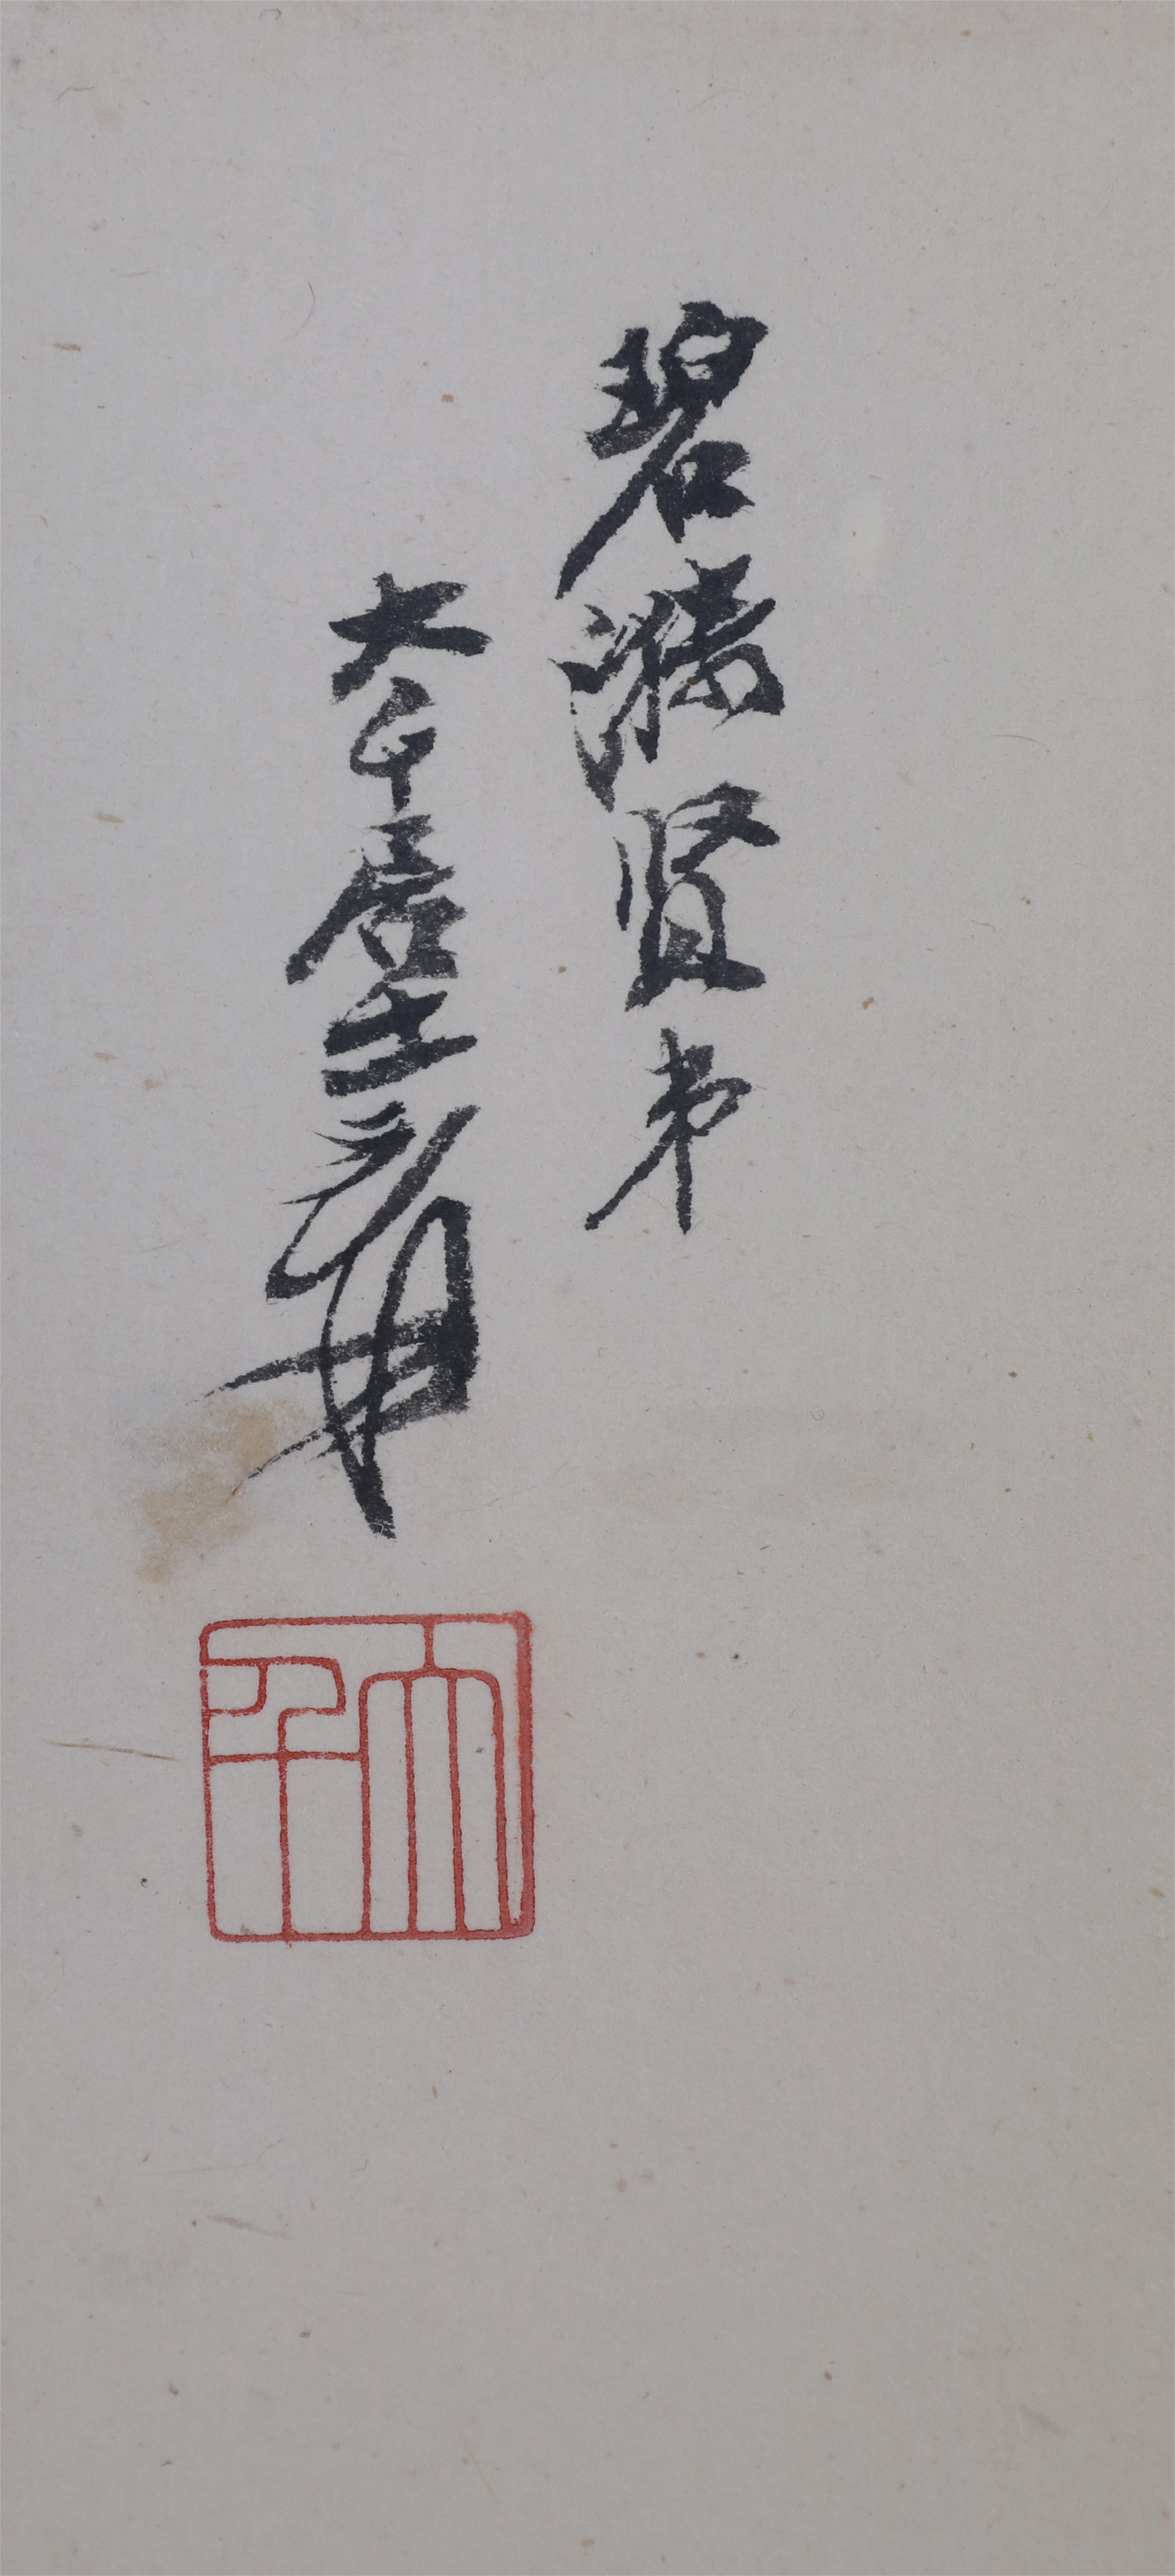 碧漪贤弟
大千居士爰
大千